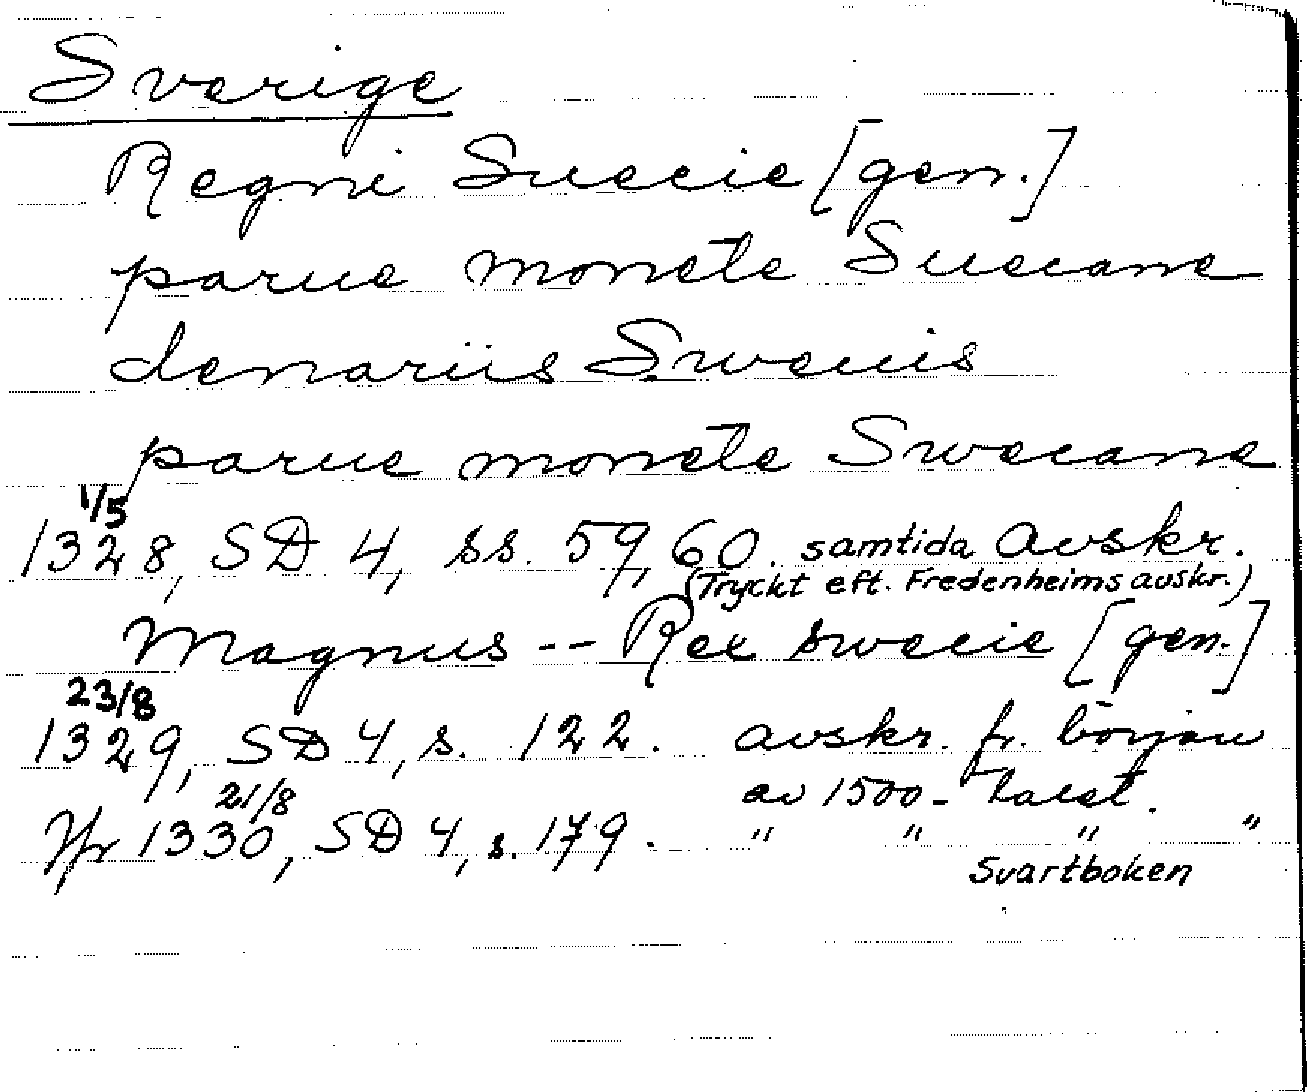 Sverige
Regni Suecie [gen.]
parue monete Suecane
denariis Sweuis
parue monete Swecane
1/5
1328, SD 4, ss. 59, 60. samtida avskr.
(Tryckt eft. Fredenheims avskr.)
Magnus -- Rex swecie [gen.]
23/8
1329, SD 4, s. 122. avskr. fr. början
21/8 av 1500-talet.
Jfr 1330, SD 4, s. 179. " " " "
Svartboken